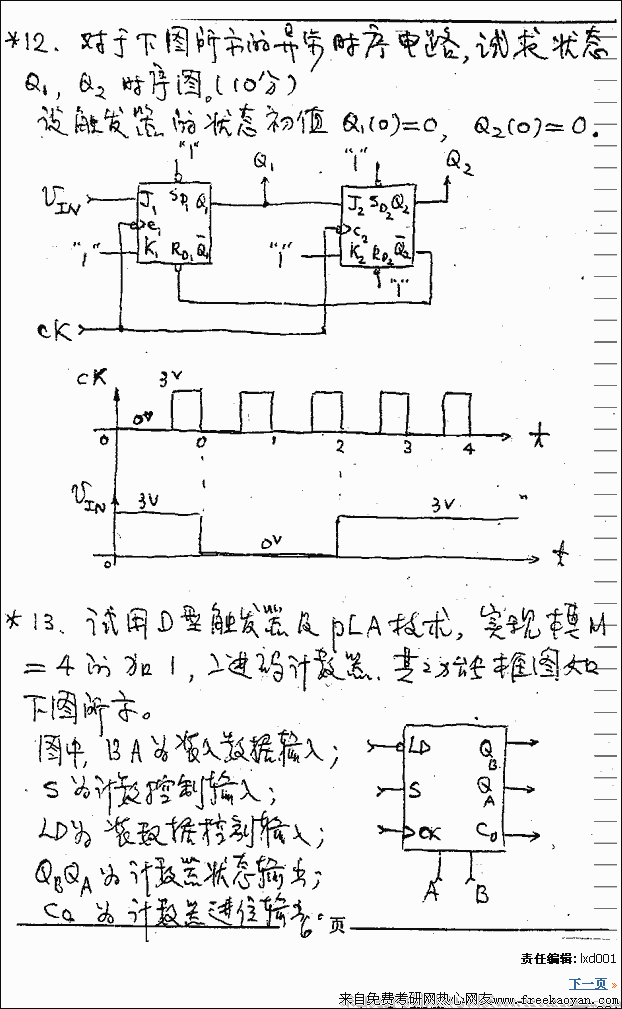 *12. 对于下图所示的异步时序电路,试求状态
Q1, Q2 时序图。(10分)
设触发器的状态初值 Q1(0)=0, Q2(0)=0.
"1" Q1 "1" Q2
VIN J1 SD1 Q1 J2 SD2 Q2
C1 C2
"1" K1 RD1 Q̅1 "1" K2 RD2 Q̅2
"1"
CK
CK 3V
0V
0 0 1 2 3 4 t
VIN 3V 3V
0V
0 t
*13. 试用D型触发器及PLA技术,实现模M
=4的加1,二进码计数器.其功能框图如
下图所示。
图中, BA为装入数据输入;
S为计数控制输入;
LD为装数据控制输入;
QBQA为计数器状态输出;
CO为计数器进位输出。
LD QB
S QA
CK CO
A B
6 页
责任编辑: lxd001
下一页 »
来自免费考研网热心网友www.freekaoyan.com